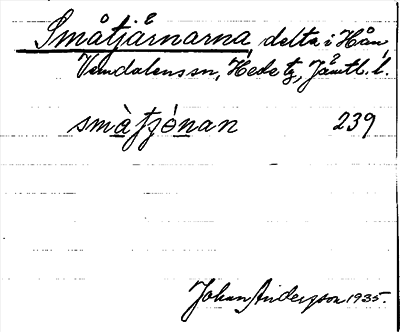 Småtjärnarna, delta i Hån
Vemdalens sn, Hede tg, Jämtl. l.
småtjǿnan 239
Johan Anderzon 1935.